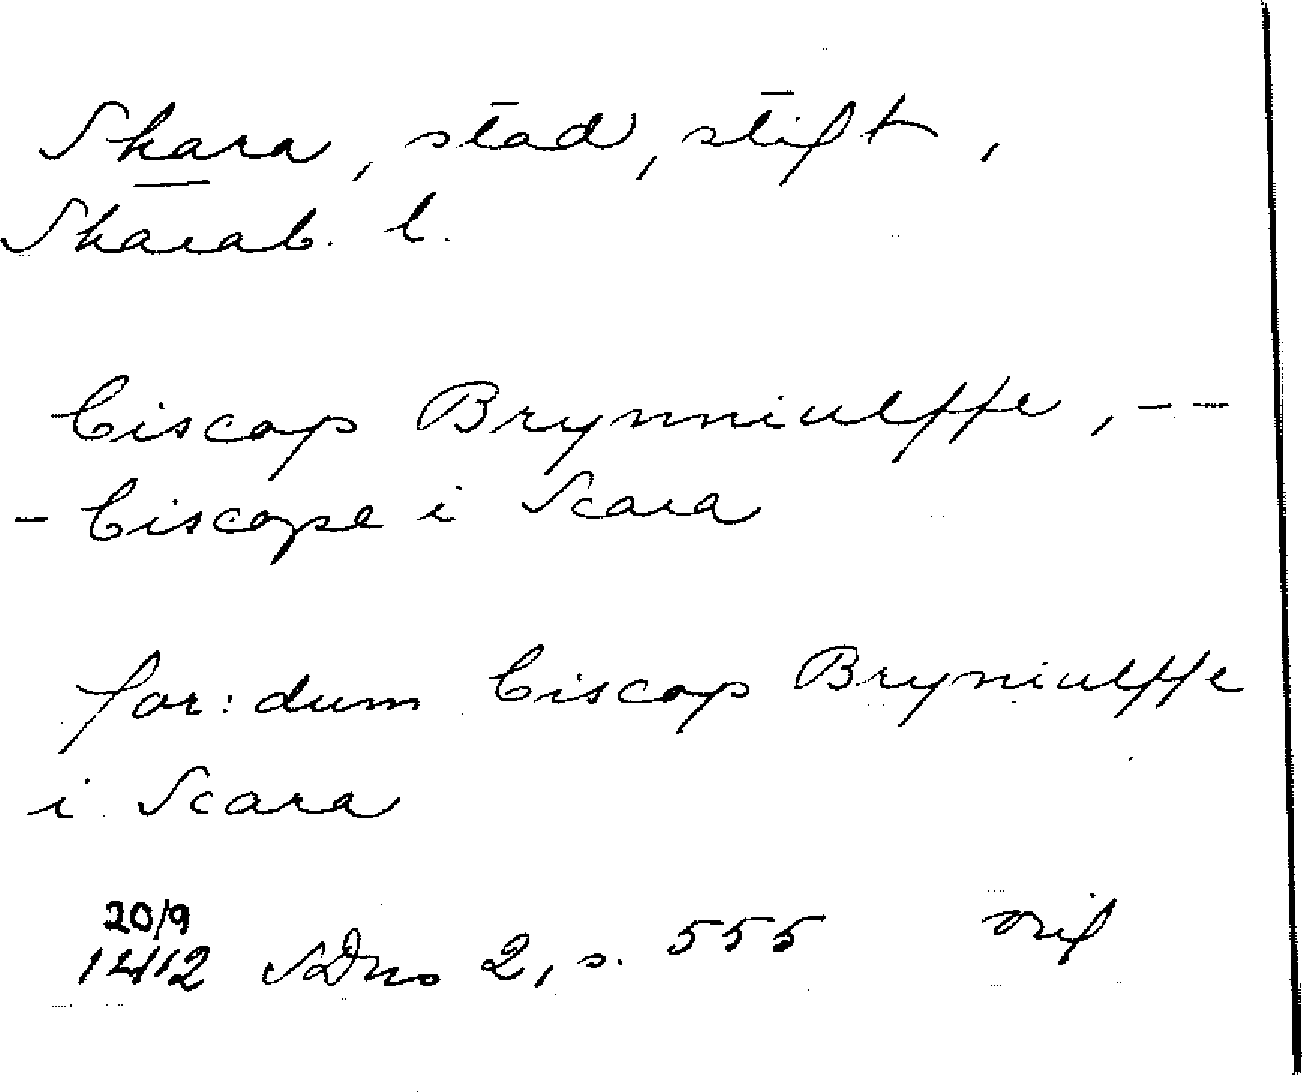 Skara, stad, stift,
Skarab. l.
biscop Brynniulffe, - --
- biscope i Scara
for: dum biscop Bryniulffe
i Scara
20/9
1412 SDns 2, s. 555 orig